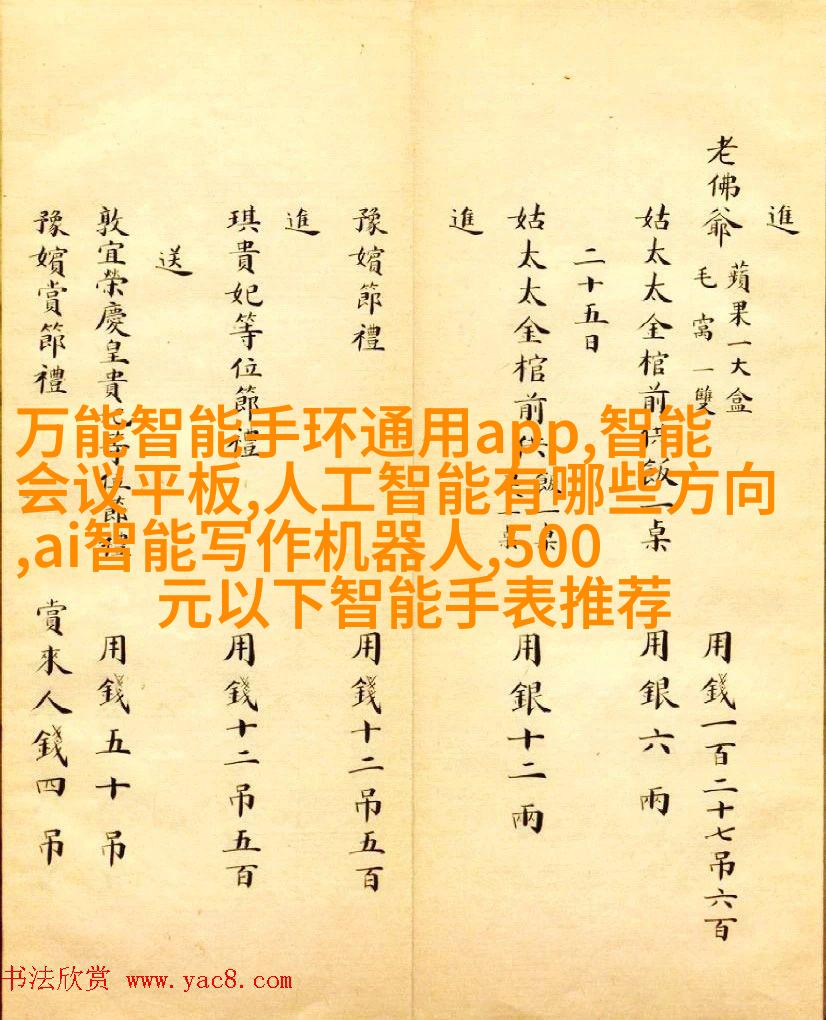 進
老佛爺 蘋果一大盒 毛窩一雙 用錢一百二十七吊六百
姑太太金棺前供飯一桌 用銀六兩
二十五日
姑太太金棺前 飯一桌 一桌 用銀十二兩
進
豫嬪節禮 用錢十二吊五百
進
琪貴妃等位節禮 用錢十二吊五百
送
敦宜榮慶皇貴妃等位節禮 用錢五十吊
豫嬪賞節禮 賞來人錢四吊
万能智能手环通用app,智能
会议平板,人工智能有哪些方向
,ai智能写作机器人,500
元以下智能手表推荐
书法欣赏 www.yac8.com